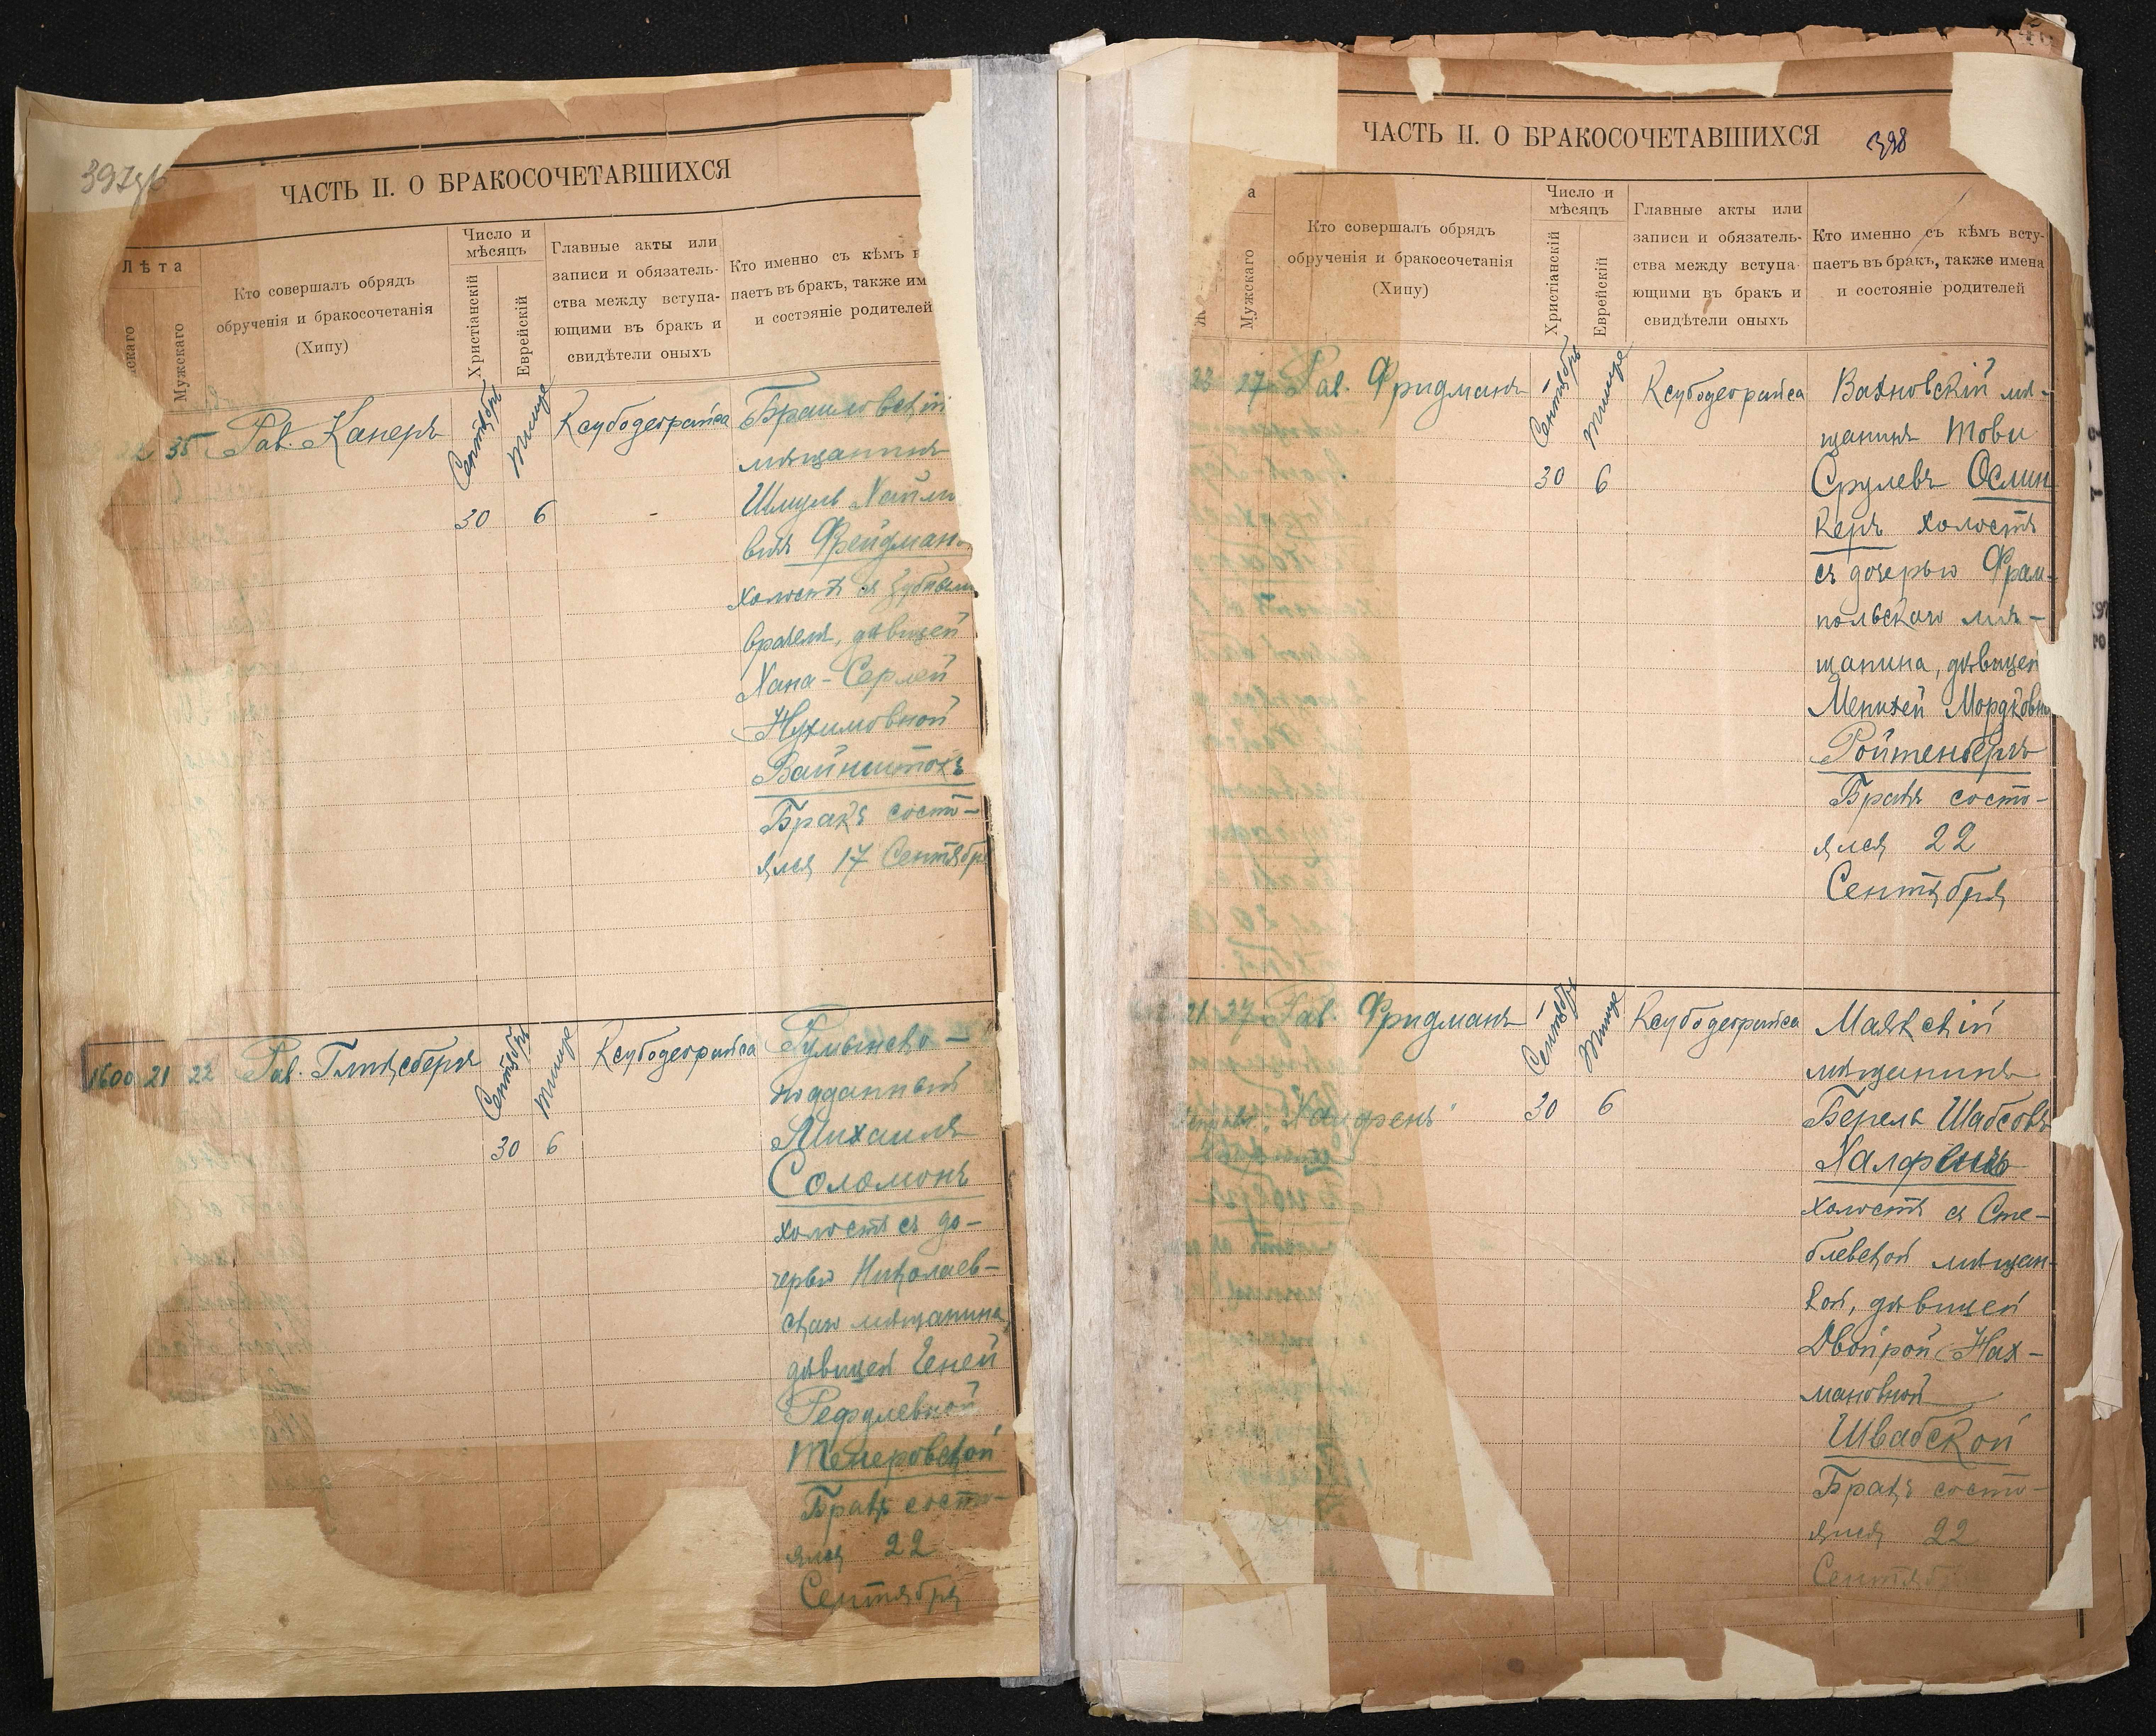 ЧАСТЬ II. О БРАКОСОЧЕТАВШИХСЯ
Лѣта
Мужскаго
Кто совершалъ обрядъ
обрученія и бракосочетанія
(Хипу)
Число и
мѣсяцъ
Христіанскій
Еврейскій
Главные акты или
записи и обязатель-
ства между вступа-
ющими въ бракъ и
свидѣтели оныхъ
Кто именно съ кѣмъ в
паетъ въ бракъ, также им
и состояніе родителей
35 Рав. Канеръ
Сентябрь
Тишре
30 6
Ксубодеорайса
Браиловскій
мѣщанинъ
Шмуль Хаимо
вичъ Фрейдманъ
холостъ съ зубным
врачемъ, дѣвицей
Хана-Серлей
Нухимовной
Вайнштокъ
Бракъ состо-
ялся 17 Сентябр
1600 21 22 Рав. Гликсбергъ
Сентябрь
Тишре
30 6
Ксубодеорайса
Румынско-
подданный
Михаилъ
Соломонъ
холостъ съ до-
черью Николаев-
скаго мѣщанина
дѣвицей Геней
Рефулевной
Бракъ состо-
ялся 22
Сентября
ЧАСТЬ II. О БРАКОСОЧЕТАВШИХСЯ
398
а
Мужскаго
Кто совершалъ обрядъ
обрученія и бракосочетанія
(Хипу)
Число и
мѣсяцъ
Христіанскій
Еврейскій
Главные акты или
записи и обязатель-
ства между вступа-
ющими въ бракъ и
свидѣтели оныхъ
Кто именно съ кѣмъ всту-
паетъ въ бракъ, также имена
и состояніе родителей
23 27 Рав. Фридманъ
Сентябрь
Тишре
30 6
Ксубодеорайса
Вахновскій мѣ-
щанинъ Тови
Срулевъ Ослин
керъ холостъ
съ дочерью Фрам-
польскаго мѣ-
щанина, дѣвицей
Менихей Мордковн
Ройтенбергъ
Бракъ состо-
ялся 22
Сентября
21 27 Рав. Фридманъ
Сентябрь
Тишре
30 6
Ксубодеорайса
Маякскій
мѣщанинъ
Берель Шабсовъ
Халфенъ
холостъ съ Сте-
блевской мѣщан-
кой, дѣвицей
Двойрой Нах-
мановной
Швабской
Бракъ состо-
ялся 22
Сентябр